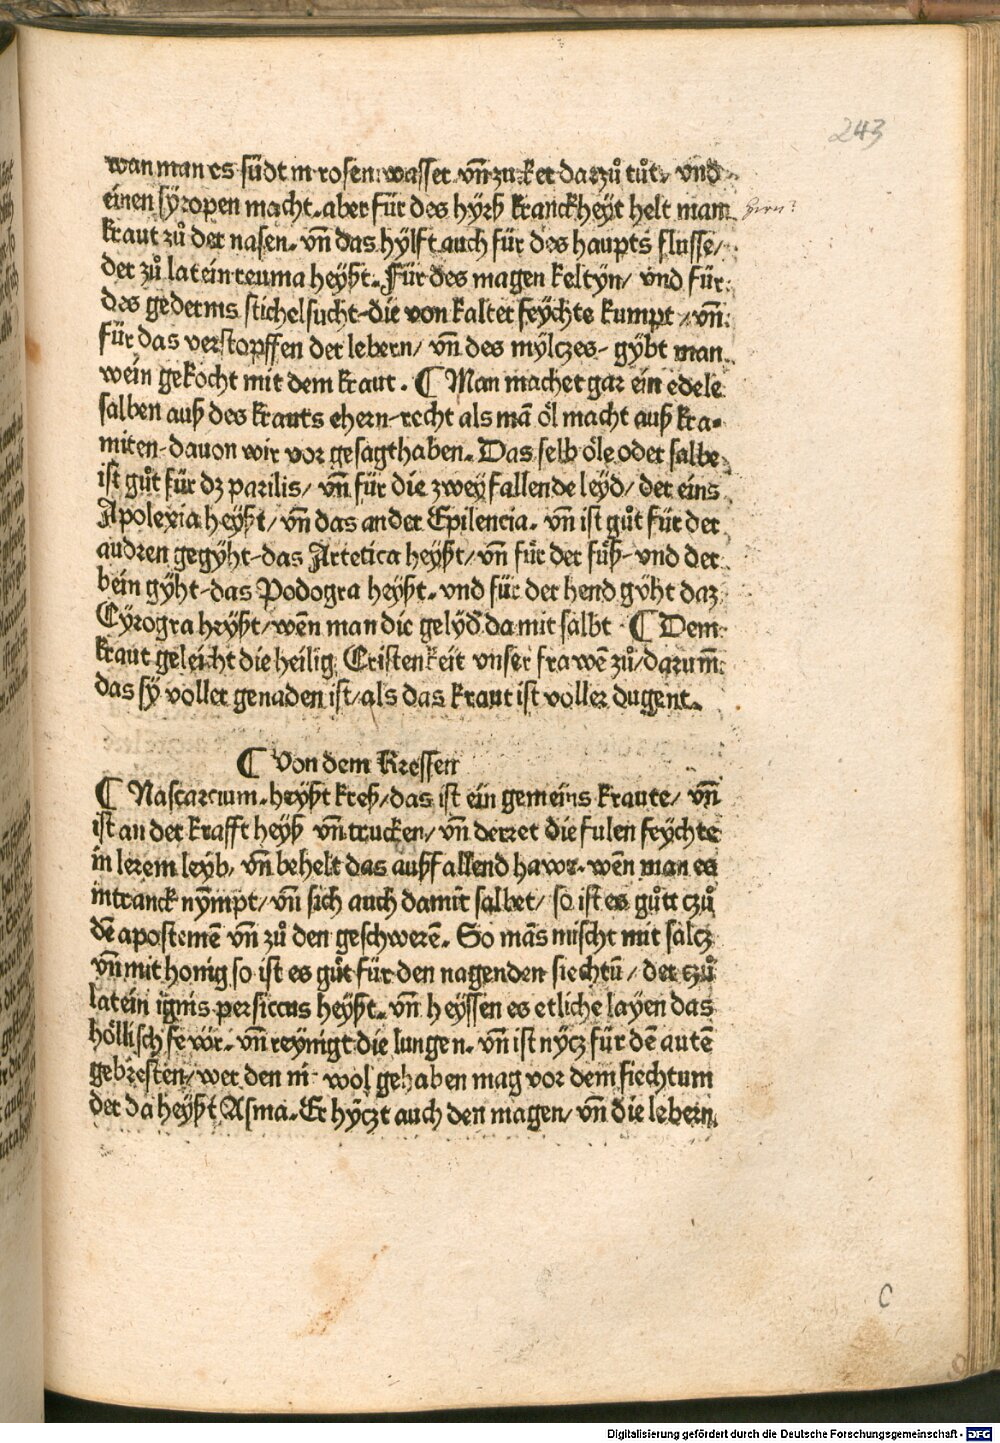 243
wan man es südt in rosen wasser vn̄ zucker darzů tůt/ vnd
einen syropen macht. aber für des hyrß kranckheyt helt mam
hirn?
kraut zů der nasen. vn̄ das hylft auch für des haupts flusse/
der zů latein reuma heyßt. Für des magen keltyn/ vnd für
des gederms stichelsucht-die von kalter feychte kumpt/ vn̄
für das verstopffen der lebern/ vn̄ des mylczes- gybt man
wein gekocht mit dem kraut. ¶ Man machet gar ein edele
salben auß des krauts ehern-recht als mā öl macht auß kra-
miten-dauon wir vor gesagt haben. Das selb öle oder salbe
ist gůt für dz parilis/ vn̄ für die zwey fallende leyd/ der eins
Apolexia heyßt/ vn̄ das ander Epilencia. vn̄ ist gůt für der
audren gegyht-das Artetica heyßt/ vn̄ für der füß-vnd der
bein gyht-das Podogra heyßt. vnd für der hend gyht daz
Cyrogra heyßt/ wēn man die gelyd damit salbt ¶ Dem
kraut geleicht die heilig Cristenkeit vnser frawē zů/ darum̄
das sy voller genaden ist/ als das kraut ist voller dugent.
¶ Von dem Kressen
¶ Nascarcium. heyßt kreß/ das ist ein gemeins kraute/ vn̄
ist an der krafft heyß vn̄ trucken/ vn̄ derret die fulen feychte
in lerem leyb/ vn̄ behelt das außfallend hawr. wēn man es
intranck nȳmpt/ vn̄ sich auch damit salbet/ so ist es gůtt czů
dē apostemē vn̄ zů den geschwerē. So mās mischt mit salcz
vn̄ mit honig so ist es gůt für den nagenden siechtū/ der czů
latein ignis persiccus heyßt. vn̄ heyssen es etliche layen das
höllisch fewr. vn̄ reynigt die lungen. vn̄ ist nycz für dē autē
gebresten/ wer den ni wol gehaben mag vor dem siechtum
der da heyßt Asma. Er hyczt auch den magen/ vn̄ die lebern
C
Digitalisierung gefördert durch die Deutsche Forschungsgemeinschaft - DFG